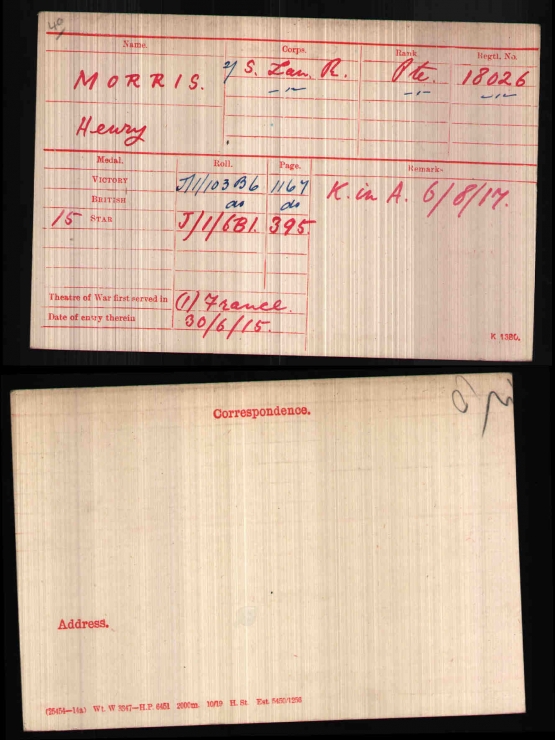 40/
Name. Corps. Rank. Regtl. No.
MORRIS. 2/ S. Lan. R. Pte. 18026
-"- -"- -"-
Henry
Medal. Roll. Page. Remarks
VICTORY J/1/103B6 1167 K. in A. 6/8/17.
BRITISH do do
15 STAR J/1/6B1. 395
Theatre of War first served in (1) France.
Date of entry therein 30/6/15.
K 1380.
Correspondence.
Address.
(25454—14a) Wt. W 5547—H.P. 6451 2000m. 10/19 H. St. Est. 5450/1256